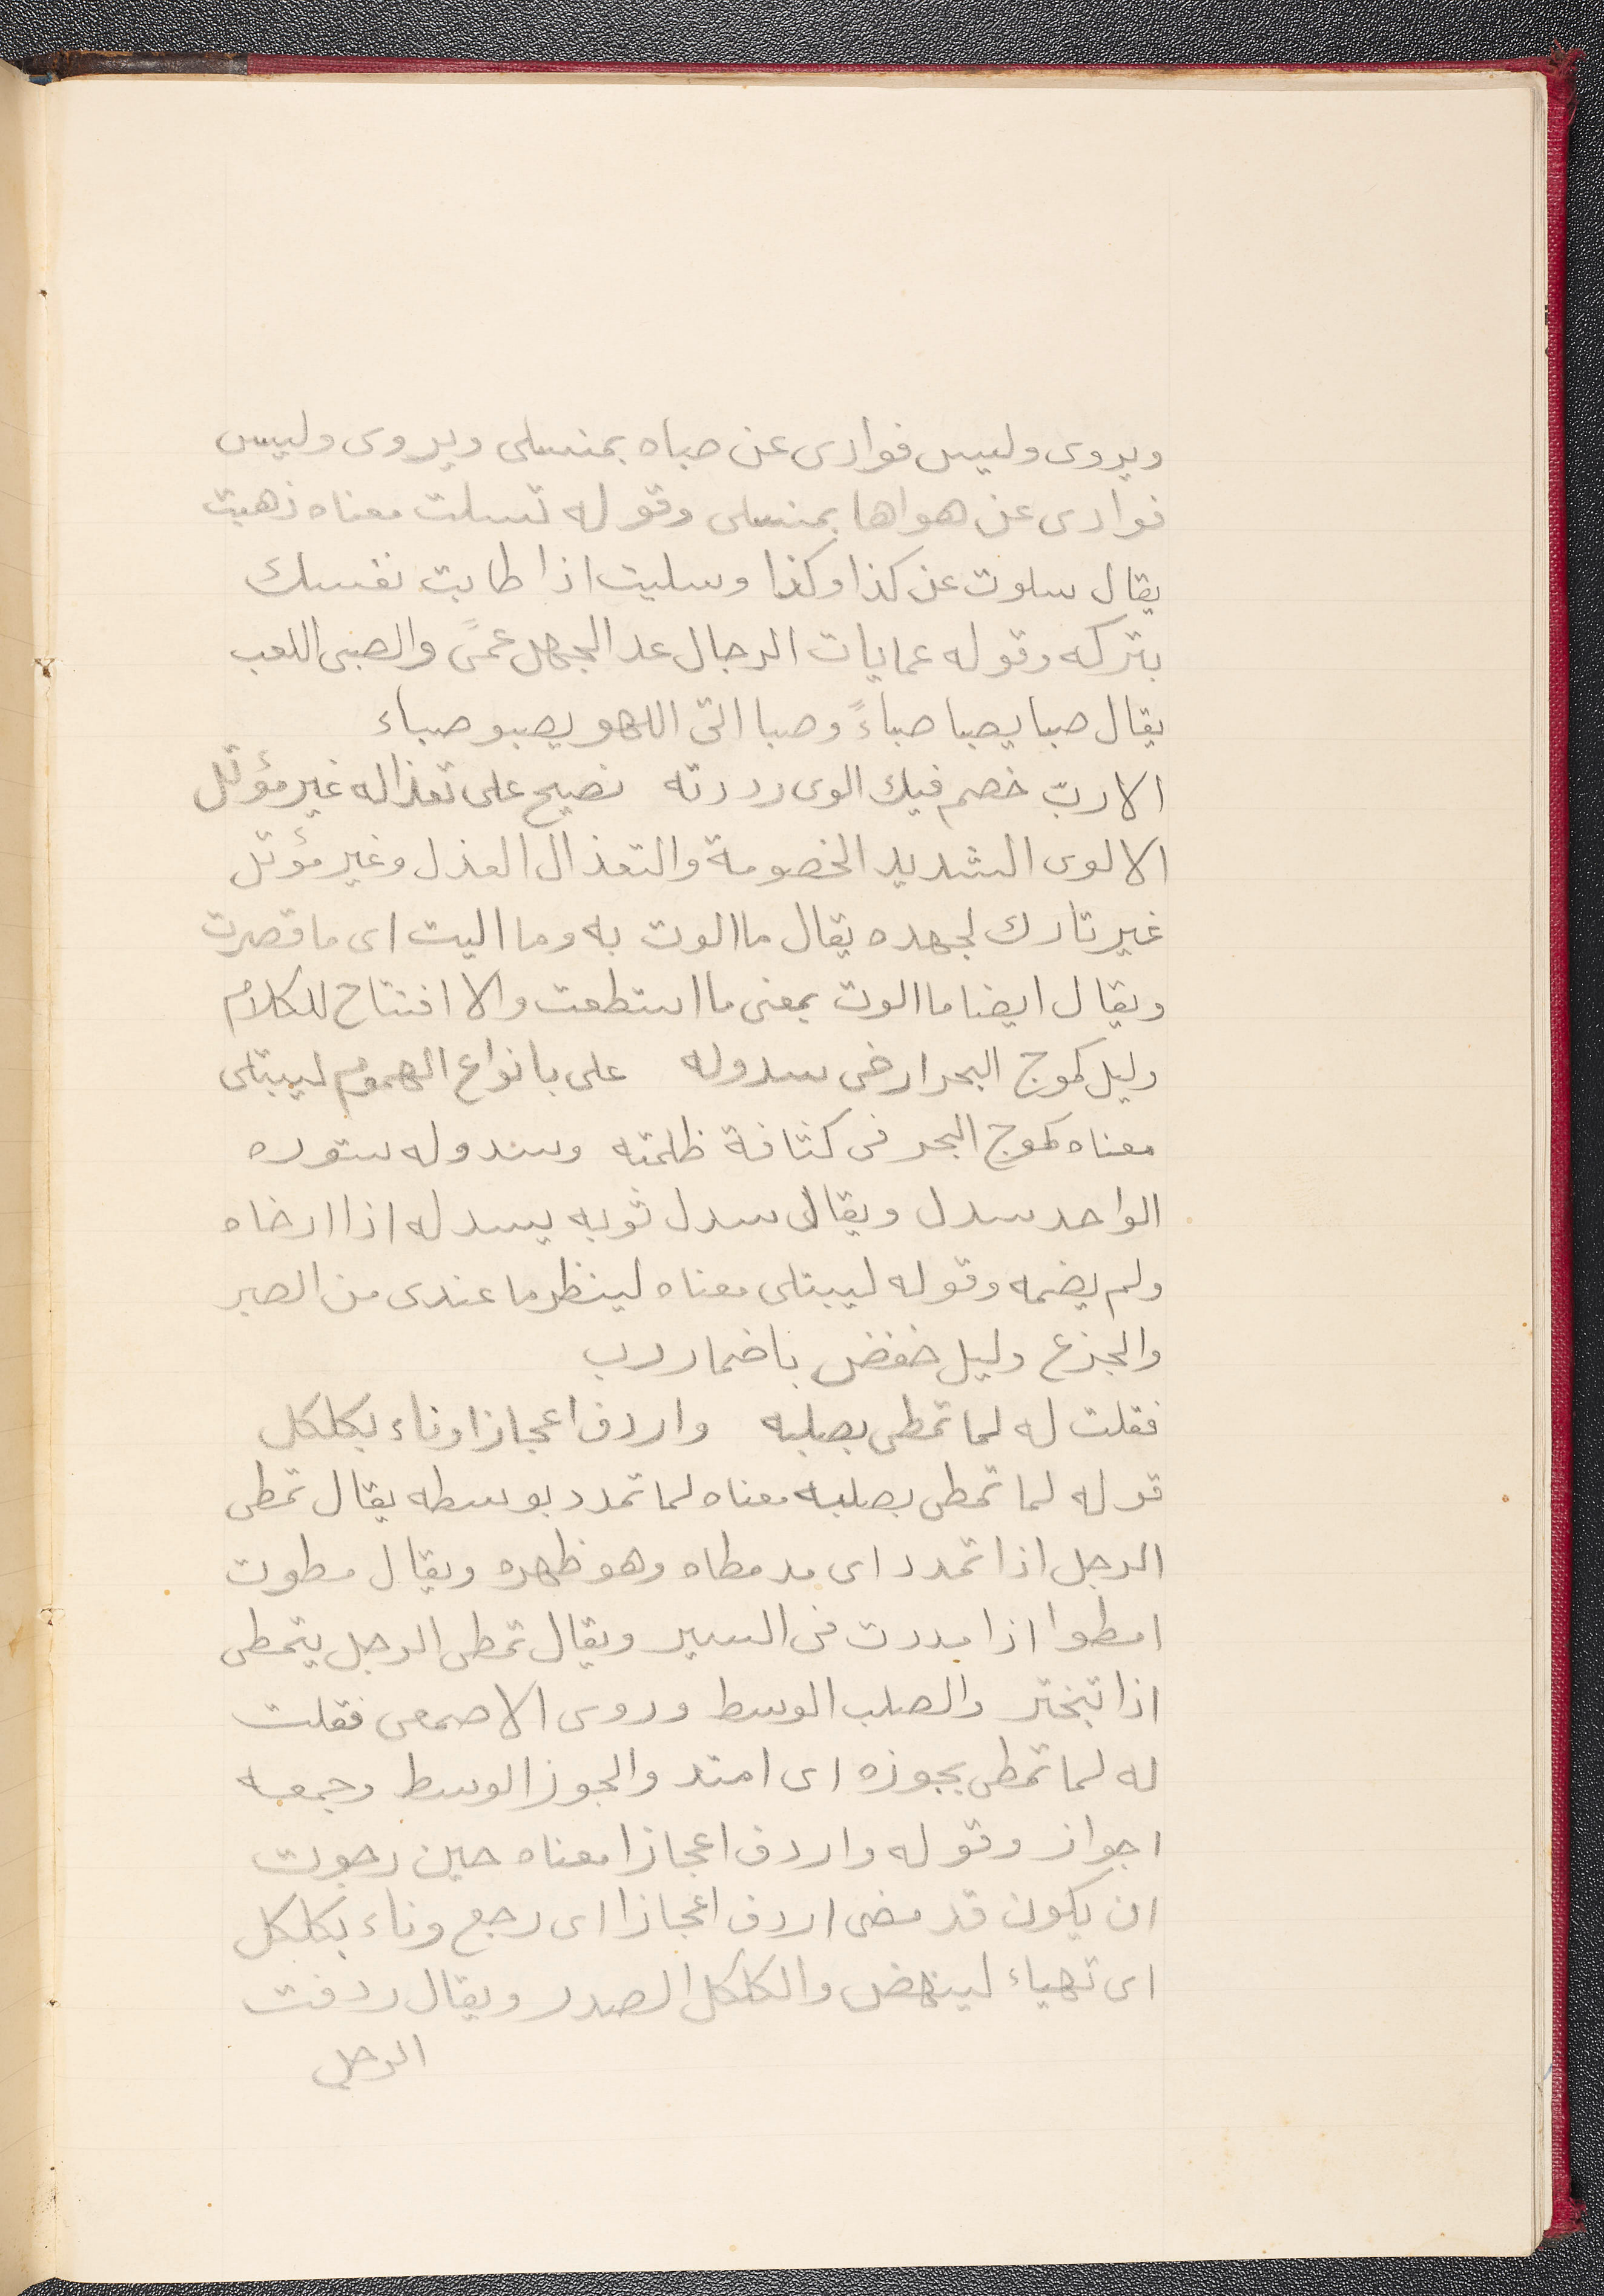 ويروى وليس فوادى عن صباه بمنسلى ويروى وليس
فوادى عن هواها بمنسلى وقوله تسلت معناه ذهبت
يقال سلوت عن كذا وكذا وسليت اذا طابت نفسك
بتركه وقوله عمايات الرجال عد الجهل عمىً والصبى اللعب
يقال صبا يصبا صباءً وصبا الى اللهو يصبو صباء
الا ربّ خصم فيك الوى رددته نصيح على تعذاله غير مؤتل
الالوى الشديد الخصومة والتعذال العذل وغير مؤتل
غير تارك لجهده يقال ما الوت به وما اليت اى ما قصرت
ويقال ايضا ما الوت بمعنى ما استطعت والا افتتاح للكلام
وليل كموج البحر ارخى سدوله على بانواع الهموم ليبتلى
معناه كموج البحر فى كثافة ظلمته وسدوله ستوره
الواحد سدل ويقال سدل ثوبه يسدله اذا ارخاه
ولم يضمه وقوله ليبتلى معناه لينظر ما عندى من الصبر
والجزع وليل خفض باضمار رب
فقلت له لما تمطى بصلبه واردف اعجازا وناء بكلكل
قوله لما تمطى بصلبه معناه لما تمدد بوسطه يقال تمطى
الرجل اذا تمدد اى مد مطاه وهو ظهره ويقال مطوت
امطوا اذا مددت فى السير ويقال تمطى الرجل يتمطى
اذا تبختر والصلب الوسط وروى الاصمعى فقلت
له لما تمطى بجوزه اى امتد والجوز الوسط وجمعه
اجواز وقوله واردف اعجازا معناه حين رجوت
ان يكون قد مضى اردف اعجازا اى رجع وناء بكلكل
اى تهياء لينهض والكلكل الصدر ويقال ردفت
الرجل